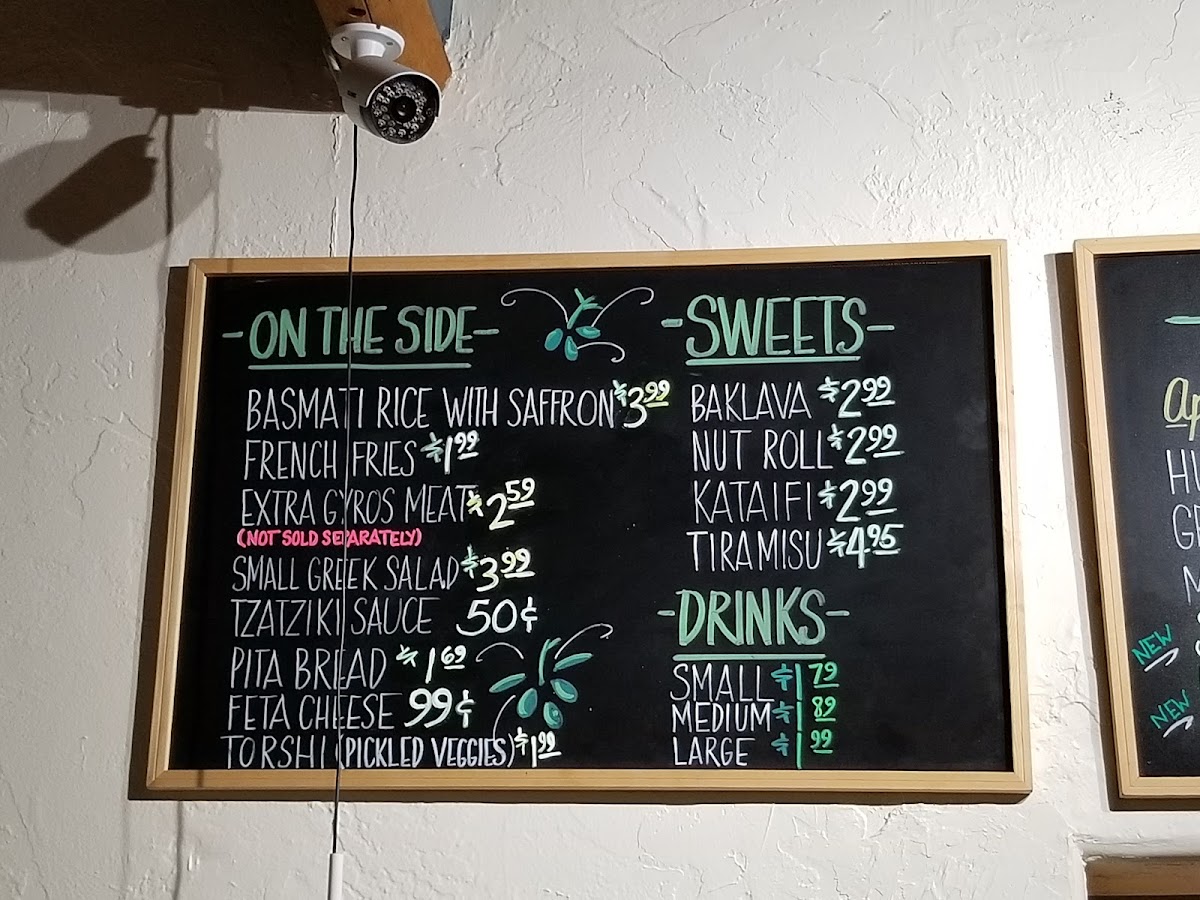 -ON THE SIDE-
BASMATI RICE WITH SAFFRON $3.99
FRENCH FRIES $1.99
EXTRA GYROS MEAT $2.59
(NOT SOLD SEPARATELY)
SMALL GREEK SALAD $3.99
TZATZIKI SAUCE 50¢
PITA BREAD $1.69
FETA CHEESE 99¢
TORSHI (PICKLED VEGGIES) $1.99
-SWEETS-
BAKLAVA $2.99
NUT ROLL $2.99
KATAIFI $2.99
TIRAMISU $4.95
-DRINKS-
SMALL $1.79
MEDIUM $1.89
LARGE $1.99
NEW
NEW